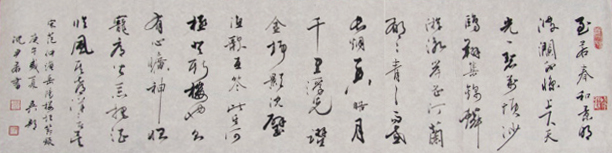 至若春和景明
波瀾不驚上下天
光一碧萬頃沙
鷗翔集錦鱗
游泳岸芷汀蘭
郁々青々而或
長煙一空皓月
千里浮光躍
金靜影沉璧
漁歌互答此樂何
極登斯樓也則
有心曠神怡
寵辱皆忘把酒
臨風其喜洋洋者矣
宋范仲淹岳陽樓記節錄